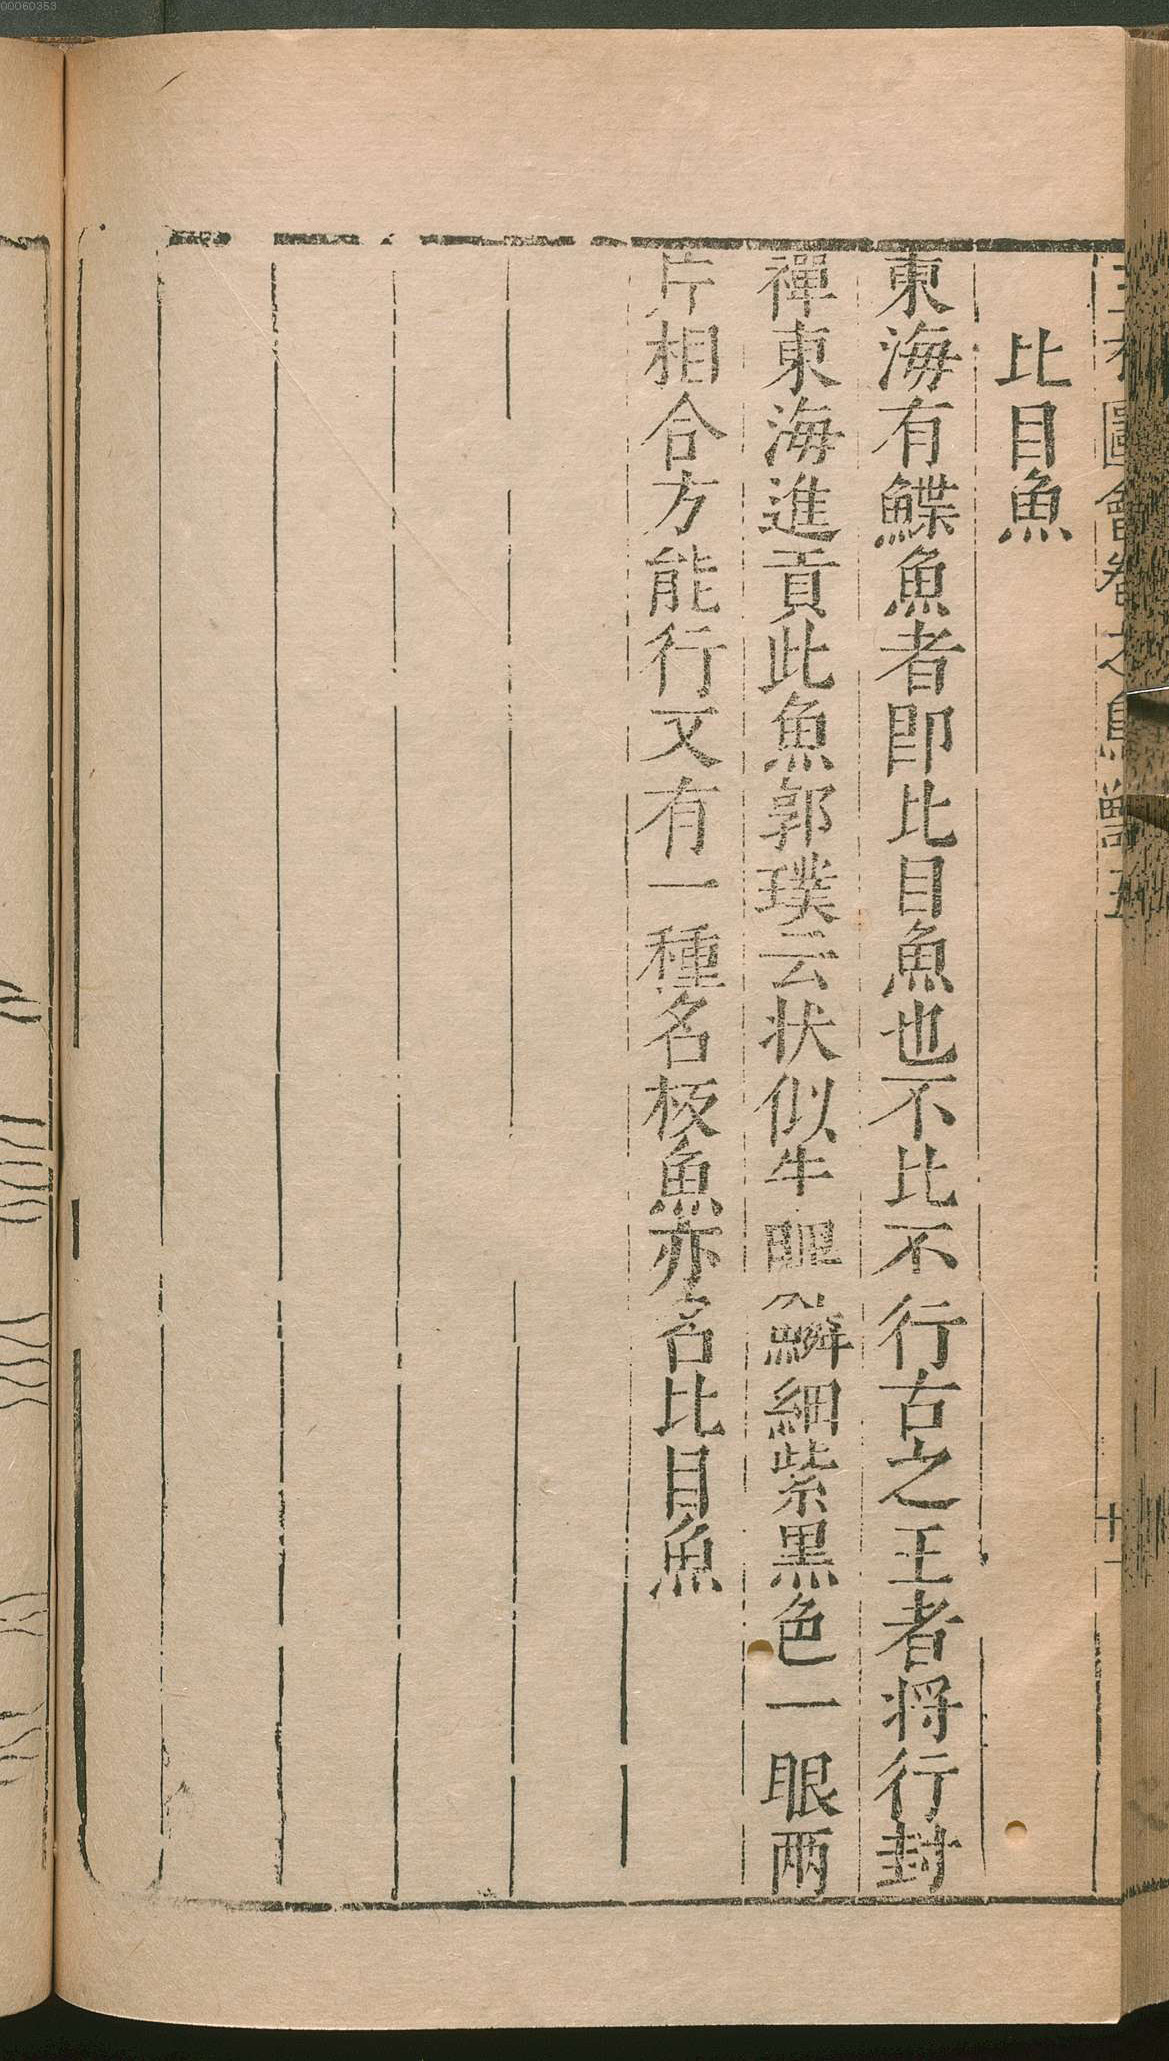 00060353
圖會卷之鳥獸五
十一
比目魚
東海有鰈魚者即比目魚也不比不行古之王者将行封
禪東海進貢此魚郭璞云状似牛脾鱗細紫黑色一眼两
片相合方能行又有一種名板魚亦名比目魚